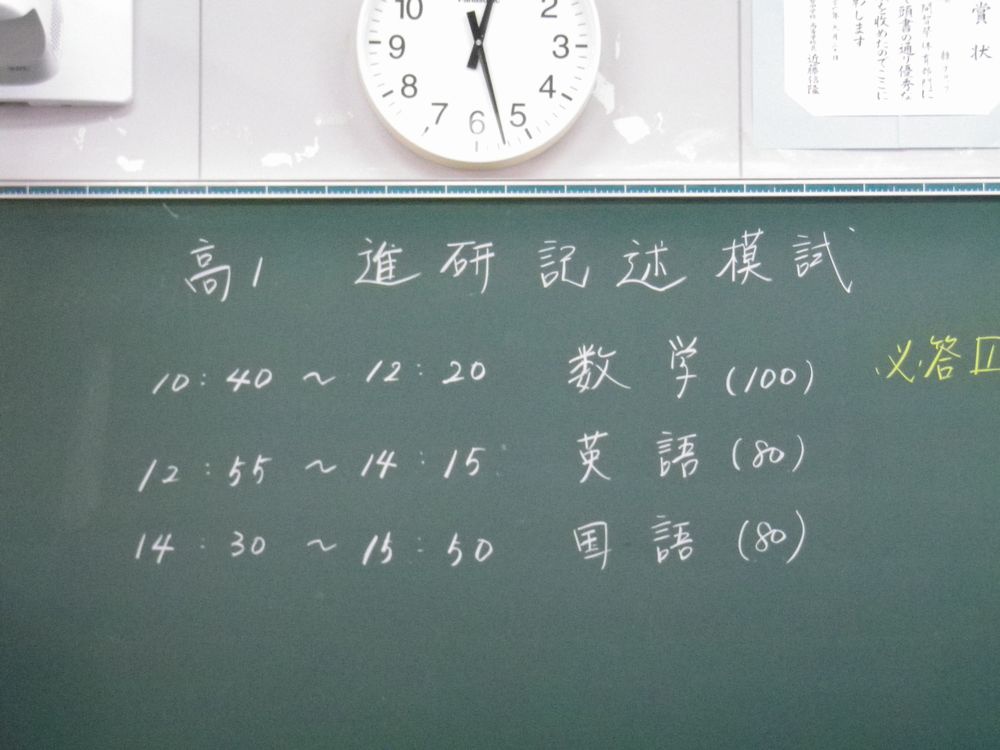 10 2
9 3
8 4
7 6 5
賞状
頭書の通り優秀な
を収めたのでここに
します
近藤信隆
高1 進研記述模試
10:40 ~ 12:20 数学 (100) 必答
12:55 ~ 14:15 英語 (80)
14:30 ~ 15:50 国語 (80)